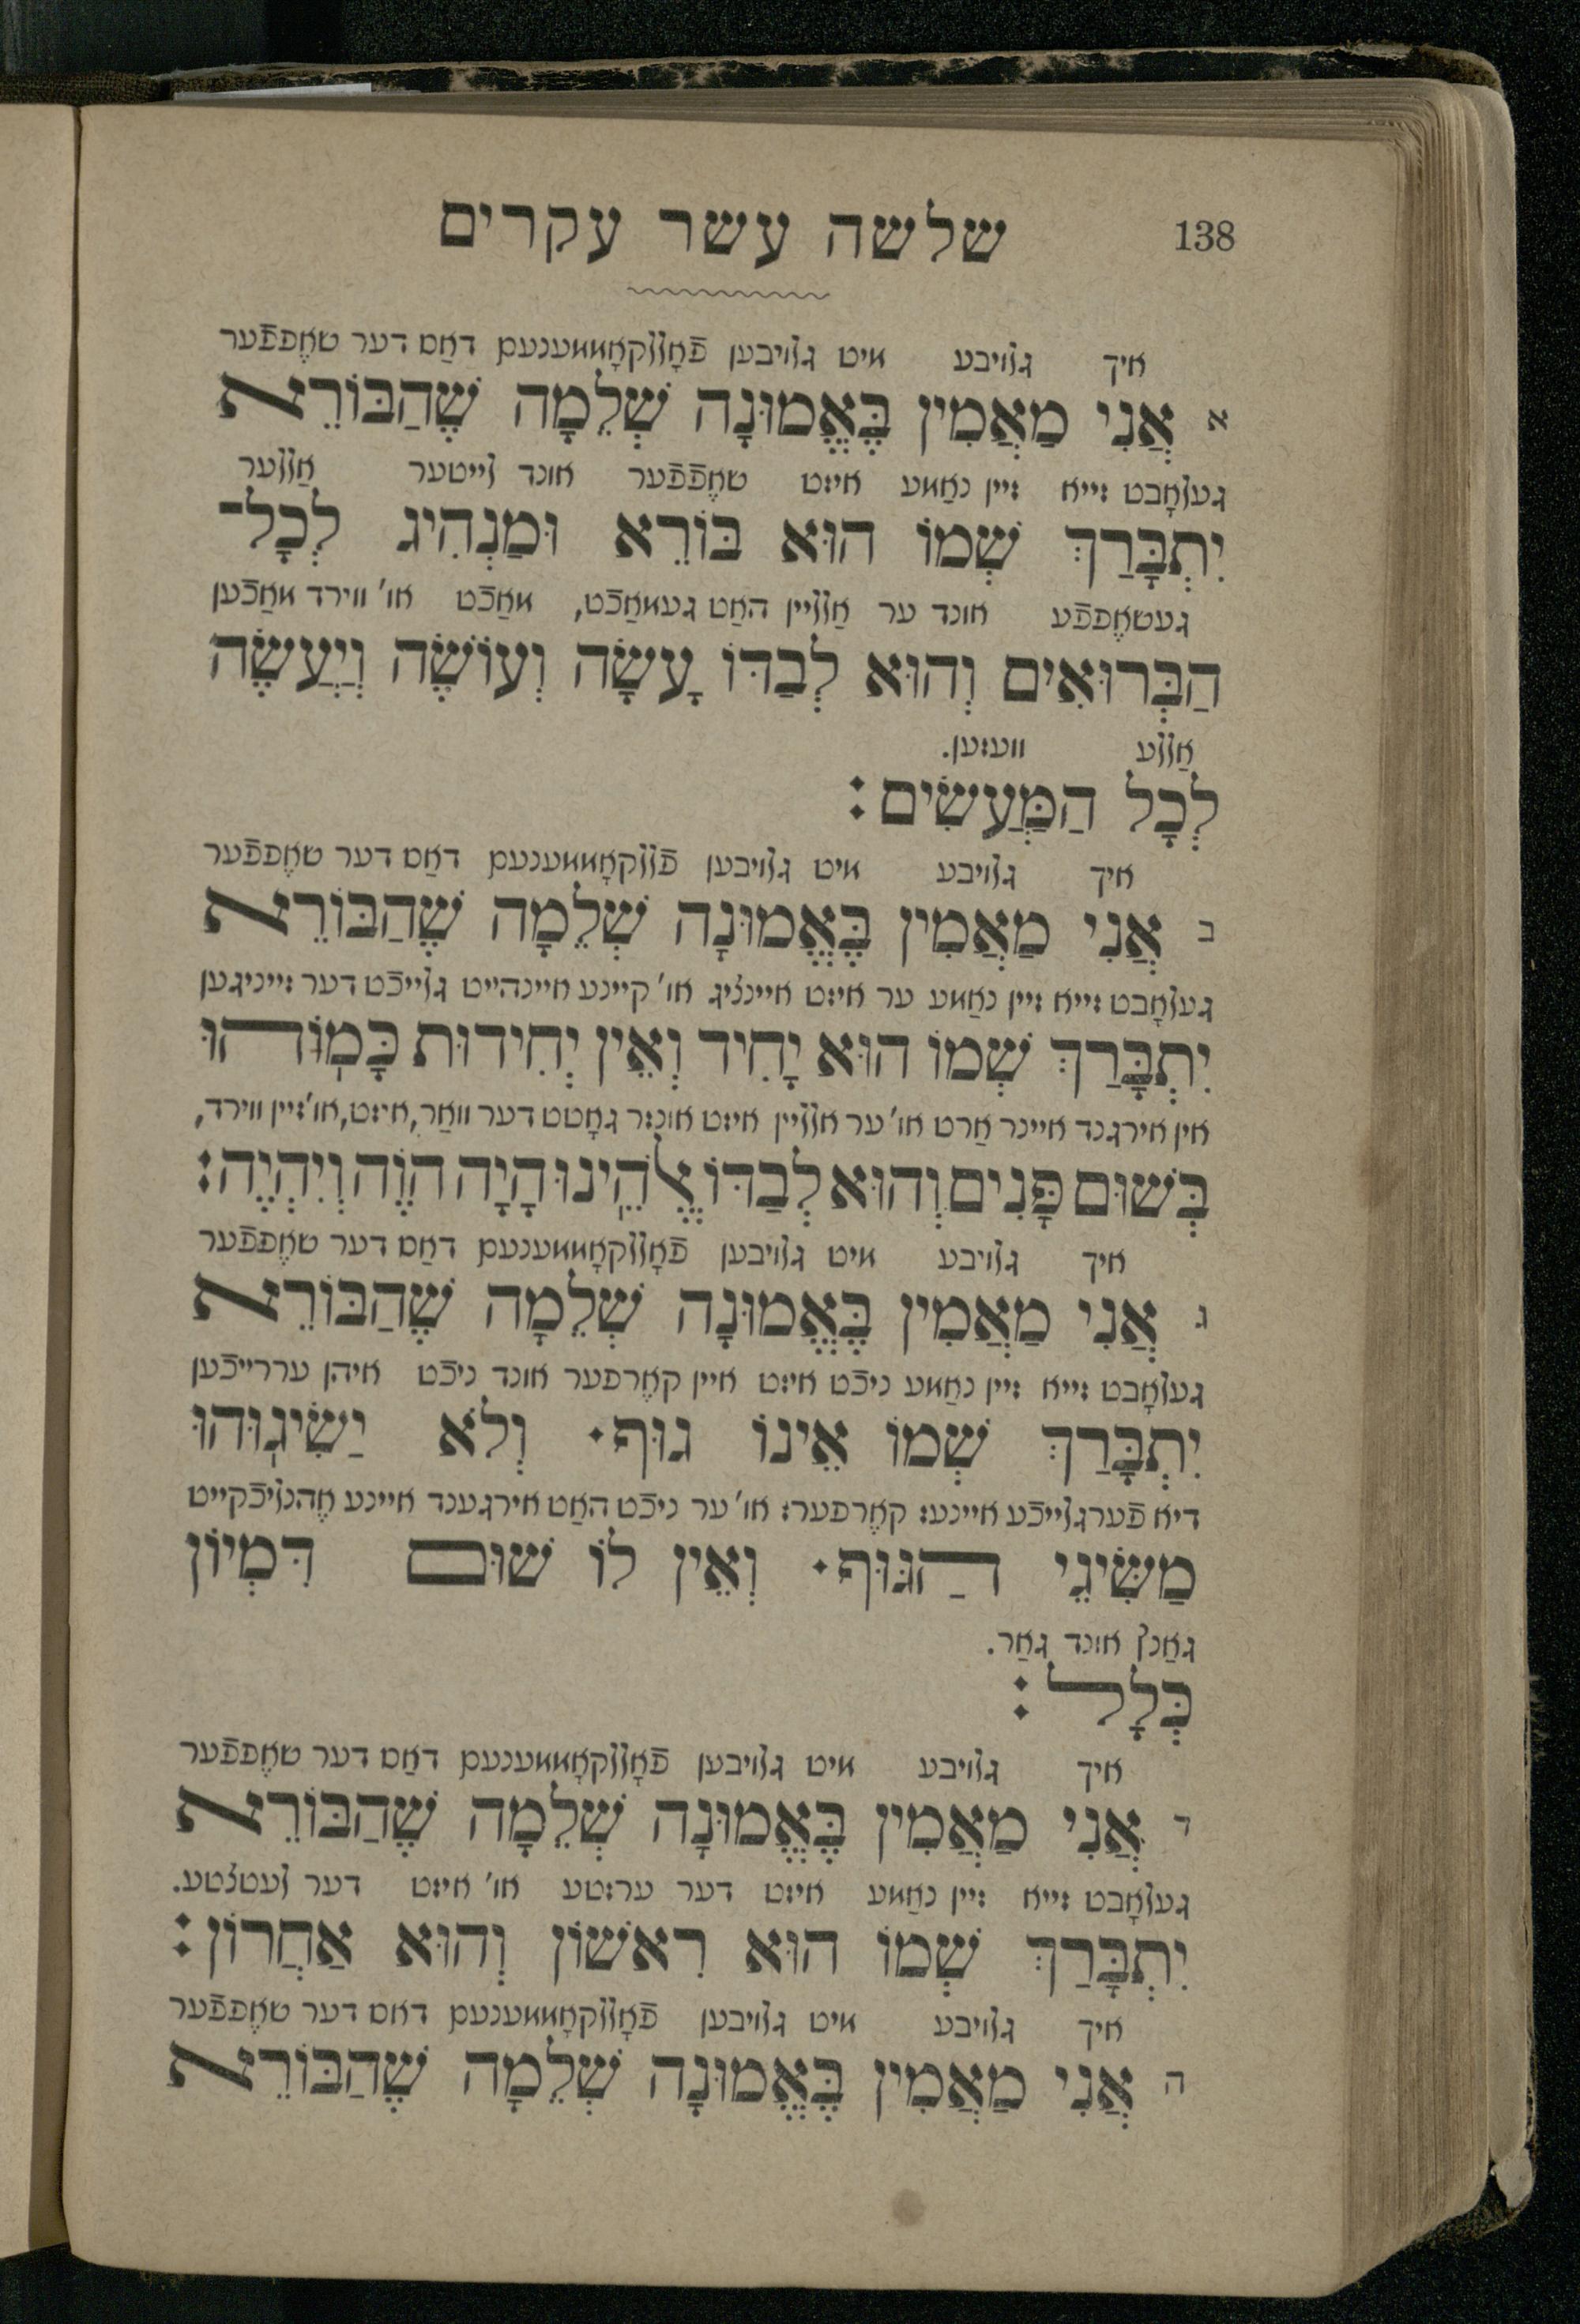 138 שלשה עשר עקרים
איך גלויבע מיט גלויבען פֿאָללקאָממענעם דאַס דער שאֶפפֿער
א אֲנִי מַאֲמִין בֶּאֱמוּנָה שְׁלֵמָה שֶׁהַבּוֹרֵא
געלאָבט זייא זיין נאַמע איזט שאֶפֿפֿער אונד לייטער אַללער
יִתְבָּרַךְ שְׁמוֹ הוּא בּוֹרֵא וּמַנְהִיג לְכָל־
געשאֶפפֿע אונד ער אַלליין האַט געמאַכֿט, מאַכֿט או' ווירד מאַכֿען
הַבְּרוּאִים וְהוּא לְבַדּוֹ עָשָׂה וְעוֹשֶׂה וְיַעֲשֶׂה
אַללע וועזען.
לְכָל הַמַּעֲשִׂים:
איך גלויבע מיט גלויבען פֿללקאָממענעם דאַס דער שאֶפפֿער
ב אֲנִי מַאֲמִין בֶּאֱמוּנָה שְׁלֵמָה שֶׁהַבּוֹרֵא
געלאָבט זייא זיין נאַמע ער איזט איינציג או' קיינע איינהייט גלייכֿט דער זייניגען
יִתְבָּרַךְ שְׁמוֹ הוּא יָחִיד וְאֵין יְחִידוּת כָּמוֹהוּ
אין אירגנד איינר אַרט או' ער אלליין איזט אונזר גאָטט דער וואַר, איזט, או' זיין ווירד,
בְּשׁוּם פָּנִים וְהוּא לְבַדּוֹ אֱלֹהֵינוּ הָיָה הֹוֶה וְיִהְיֶה:
איך גלויבע מיט גלויבען פֿאָללקאָממענעם דאַס דער שאֶפפֿער
ג אֲנִי מַאֲמִין בֶּאֱמוּנָה שְׁלֵמָה שֶׁהַבּוֹרֵא
געלאָבט זייא זיין נאַמע ניכֿט איזט איין קאֶרפער אונד ניכֿט איהן עררייכֿען
יִתְבָּרַךְ שְׁמוֹ אֵינוֹ גוּף· וְלֹא יַשִּׂיגוּהוּ
דיא פֿערגלייכֿע איינעז קאֶרפערז או' ער ניכֿט האַט אירגענד איינע אֶהנליכֿקייט
מַשִּׂיגֵי הַגּוּף· וְאֵין לוֹ שׁוּם דִּמְיוֹן
גאַנץ אונד גאַר.
כְּלָל:
איך גלויבע מיט גלויבען פֿאָללקאָממענעם דאַס דער שאֶפפֿער
ד אֲנִי מַאֲמִין בֶּאֱמוּנָה שְׁלֵמָה שֶׁהַבּוֹרֵא
געלאָבט זייא זיין נאַמע איזט דער ערזטע או' איזט דער לעטצטע.
יִתְבָּרַךְ שְׁמוֹ הוּא רִאשׁוֹן וְהוּא אַחֲרוֹן:
איך גלויבע מיט גלויבען פֿאָללקאָממענעם דאס דער שאֶפפֿער
ה אֲנִי מַאֲמִין בֶּאֱמוּנָה שְׁלֵמָה שֶׁהַבּוֹרֵא